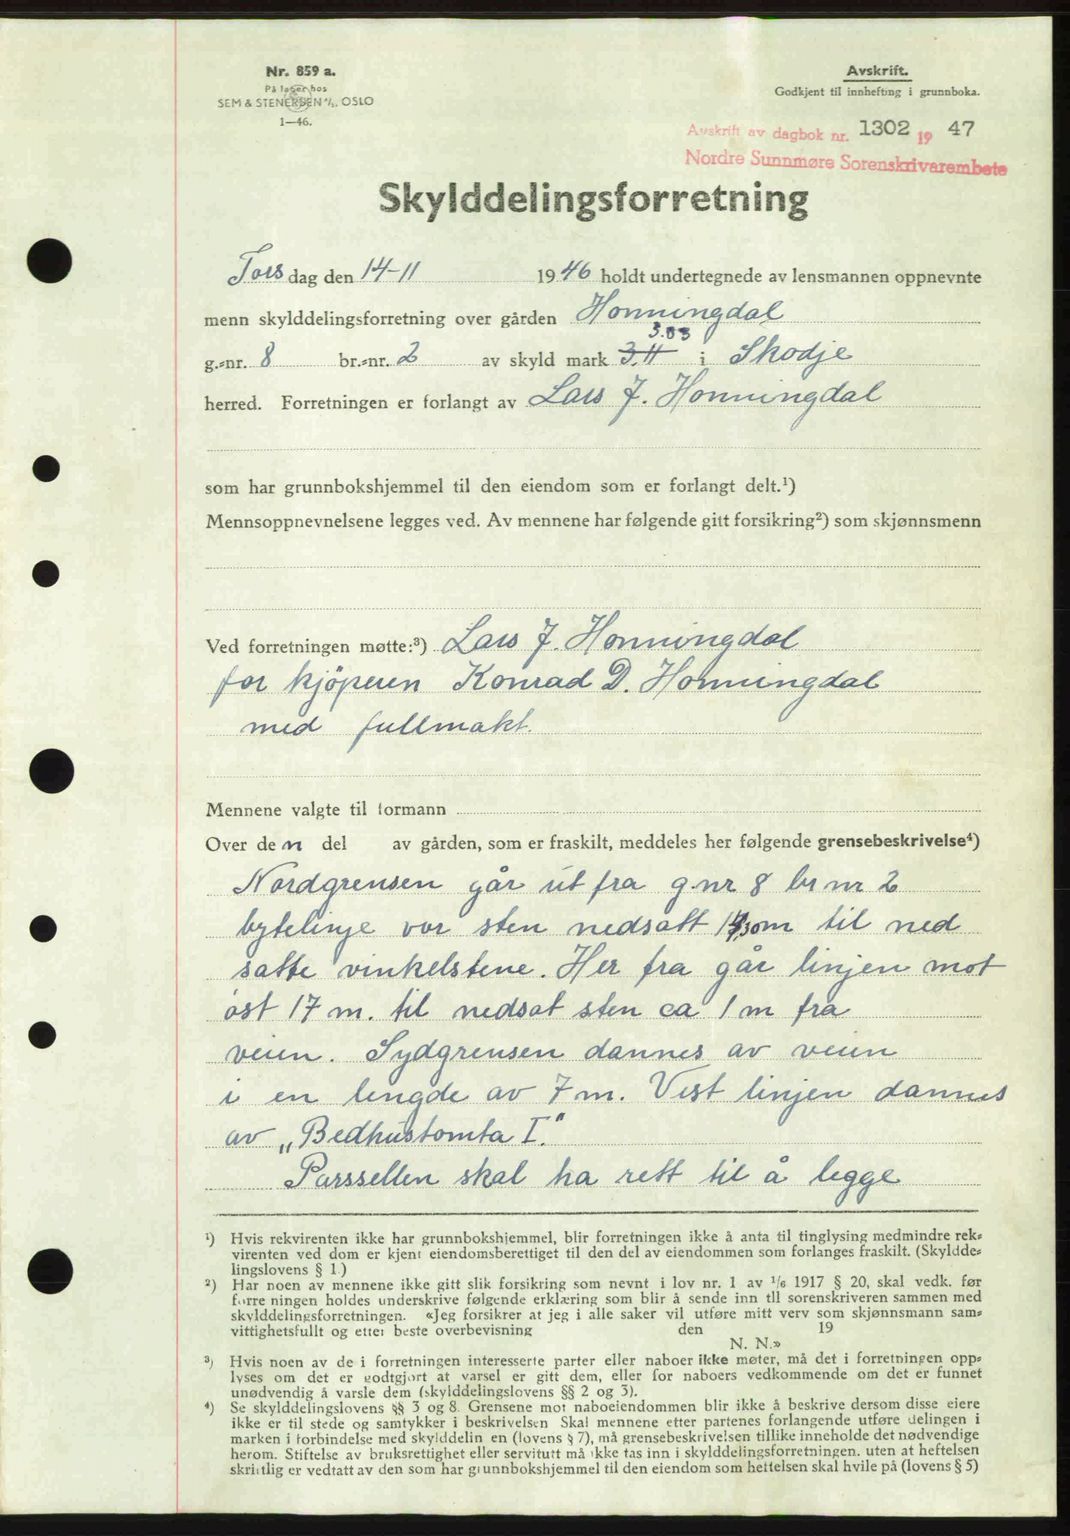 Nr. 859 a.
På lager hos
SEM & STENERSEN A/S, OSLO
1—46.
Avskrift.
Godkjent til innhefting i grunnboka.
Avskrift av dagbok nr. 1302 19 47
Nordre Sunnmøre Sorenskrivarembete
Skylddelingsforretning
Tors dag den 14-11 19 46 holdt undertegnede av lensmannen oppnevnte
menn skylddelingsforretning over gården Honningdal
3.03
g.-nr. 8 br.-nr. 2 av skyld mark 3.11 i Skodje
herred. Forretningen er forlangt av Lars J. Honningdal
som har grunnbokshjemmel til den eiendom som er forlangt delt.¹)
Mennsoppnevnelsene legges ved. Av mennene har følgende gitt forsikring²) som skjønnsmenn
Ved forretningen møtte:³) Lars J. Honningdal
for kjöperen Konrad D. Honningdal
med fullmakt.
Mennene valgte til formann
Over de n del av gården, som er fraskilt, meddeles her følgende grensebeskrivelse⁴)
Nordgrensen går ut fra g.nr 8 br nr 2
bytelinje vor sten nedsatt 17,30m til ned
satte vinkelstene. Her fra går linjen mot
öst 17 m. til nedsat sten ca 1 m fra
veien. Sydgrensen dannes av veien
i en lengde av 7 m. Vest linjen dannes
av „Bedhustomta I."
Parssellen skal ha rett til å legge
¹) Hvis rekvirenten ikke har grunnbokshjemmel, blir forretningen ikke å anta til tinglysing medmindre rek-
virenten ved dom er kjent eiendomsberettiget til den del av eiendommen som forlanges fraskilt. (Skyldde-
lingslovens § 1)
²) Har noen av mennene ikke gitt slik forsikring som nevnt i lov nr. 1 av 1/6 1917 § 20, skal vedk. før
forretningen holdes underskrive følgende erklæring som blir å sende inn til sorenskriveren sammen med
skylddelingsforretningen. «Jeg forsikrer at jeg i alle saker vil utføre mitt verv som skjønnsmann sam-
vittighetsfullt og etter beste overbevisning den 19
N. N.»
³) Hvis noen av de i forretningen interesserte parter eller naboer ikke møter, må det i forretningen opp-
lyses om det er godtgjort at varsel er gitt dem, eller for naboers vedkommende om det er funnet
unødvendig å varsle dem (skylddelingslovens §§ 2 og 3).
⁴) Se skylddelingslovens §§ 3 og 8. Grensene mot naboeiendommen blir ikke å beskrive dersom disse eiere
ikke er til stede og samtykker i beskrivelsen Skal mennene etter partenes forlangende utføre delingen i
marken i forbindelse med skylddelin en (lovens § 7), må grensebeskrivelsen tillike inneholde det nødvendige
herom. Stiftelse av bruksrettighet eller servitutt må ikke tas inn i skylddelingsforretningen, uten at heftelsen
skriftlig er vedtatt av den som har grunnbokshjemmel til den eiendom som heftelsen skal hvile på (lovens § 5)